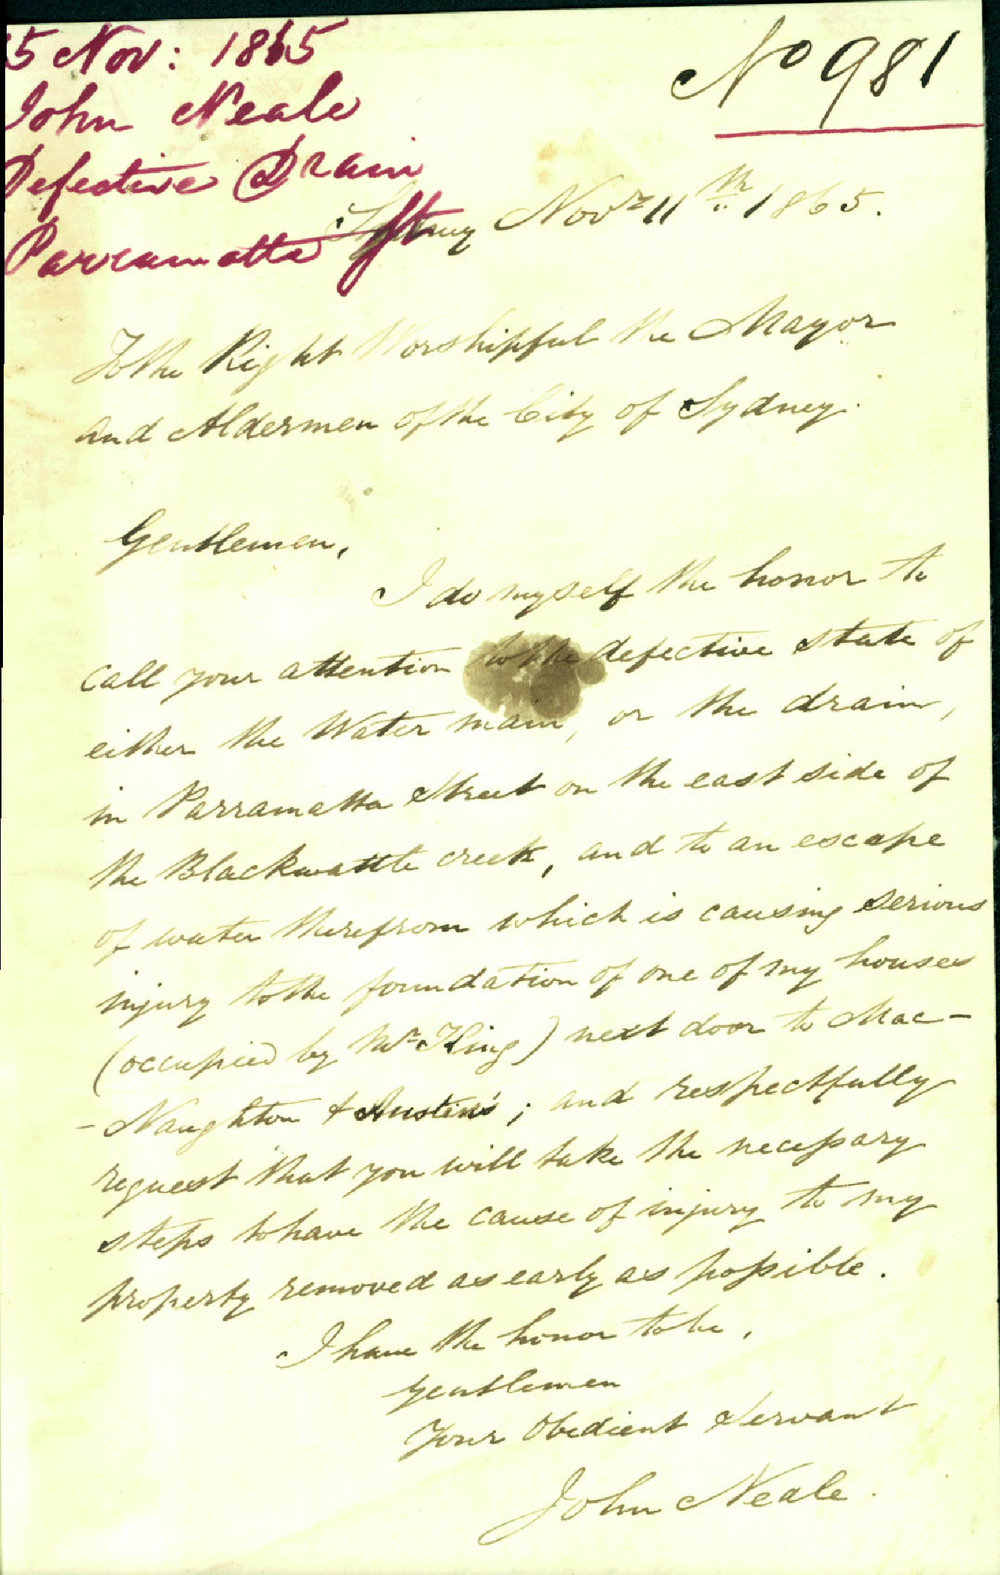 5 Nov: 1865
No 981
John Neale
Defective Drain
Parramatta St
Sydney Novr 11th 1865.
To the Right Worshipful the Mayor
and Aldermen of the City of Sydney.
Gentlemen,
I do myself the honor to
call your attention to the defective state of
either the Water main, or the drain,
in Parramatta Street on the east side of
the Blackwattle creek, and to an escape
of water therefrom which is causing serious
injury to the foundation of one of my houses
(occupied by Mr King) next door to Mac-
-Naughton & Austin's; and respectfully
request that you will take the necessary
steps to have the cause of injury to my
property removed as early as possible.
I have the honor to be,
Gentlemen
Your Obedient Servant
John Neale.